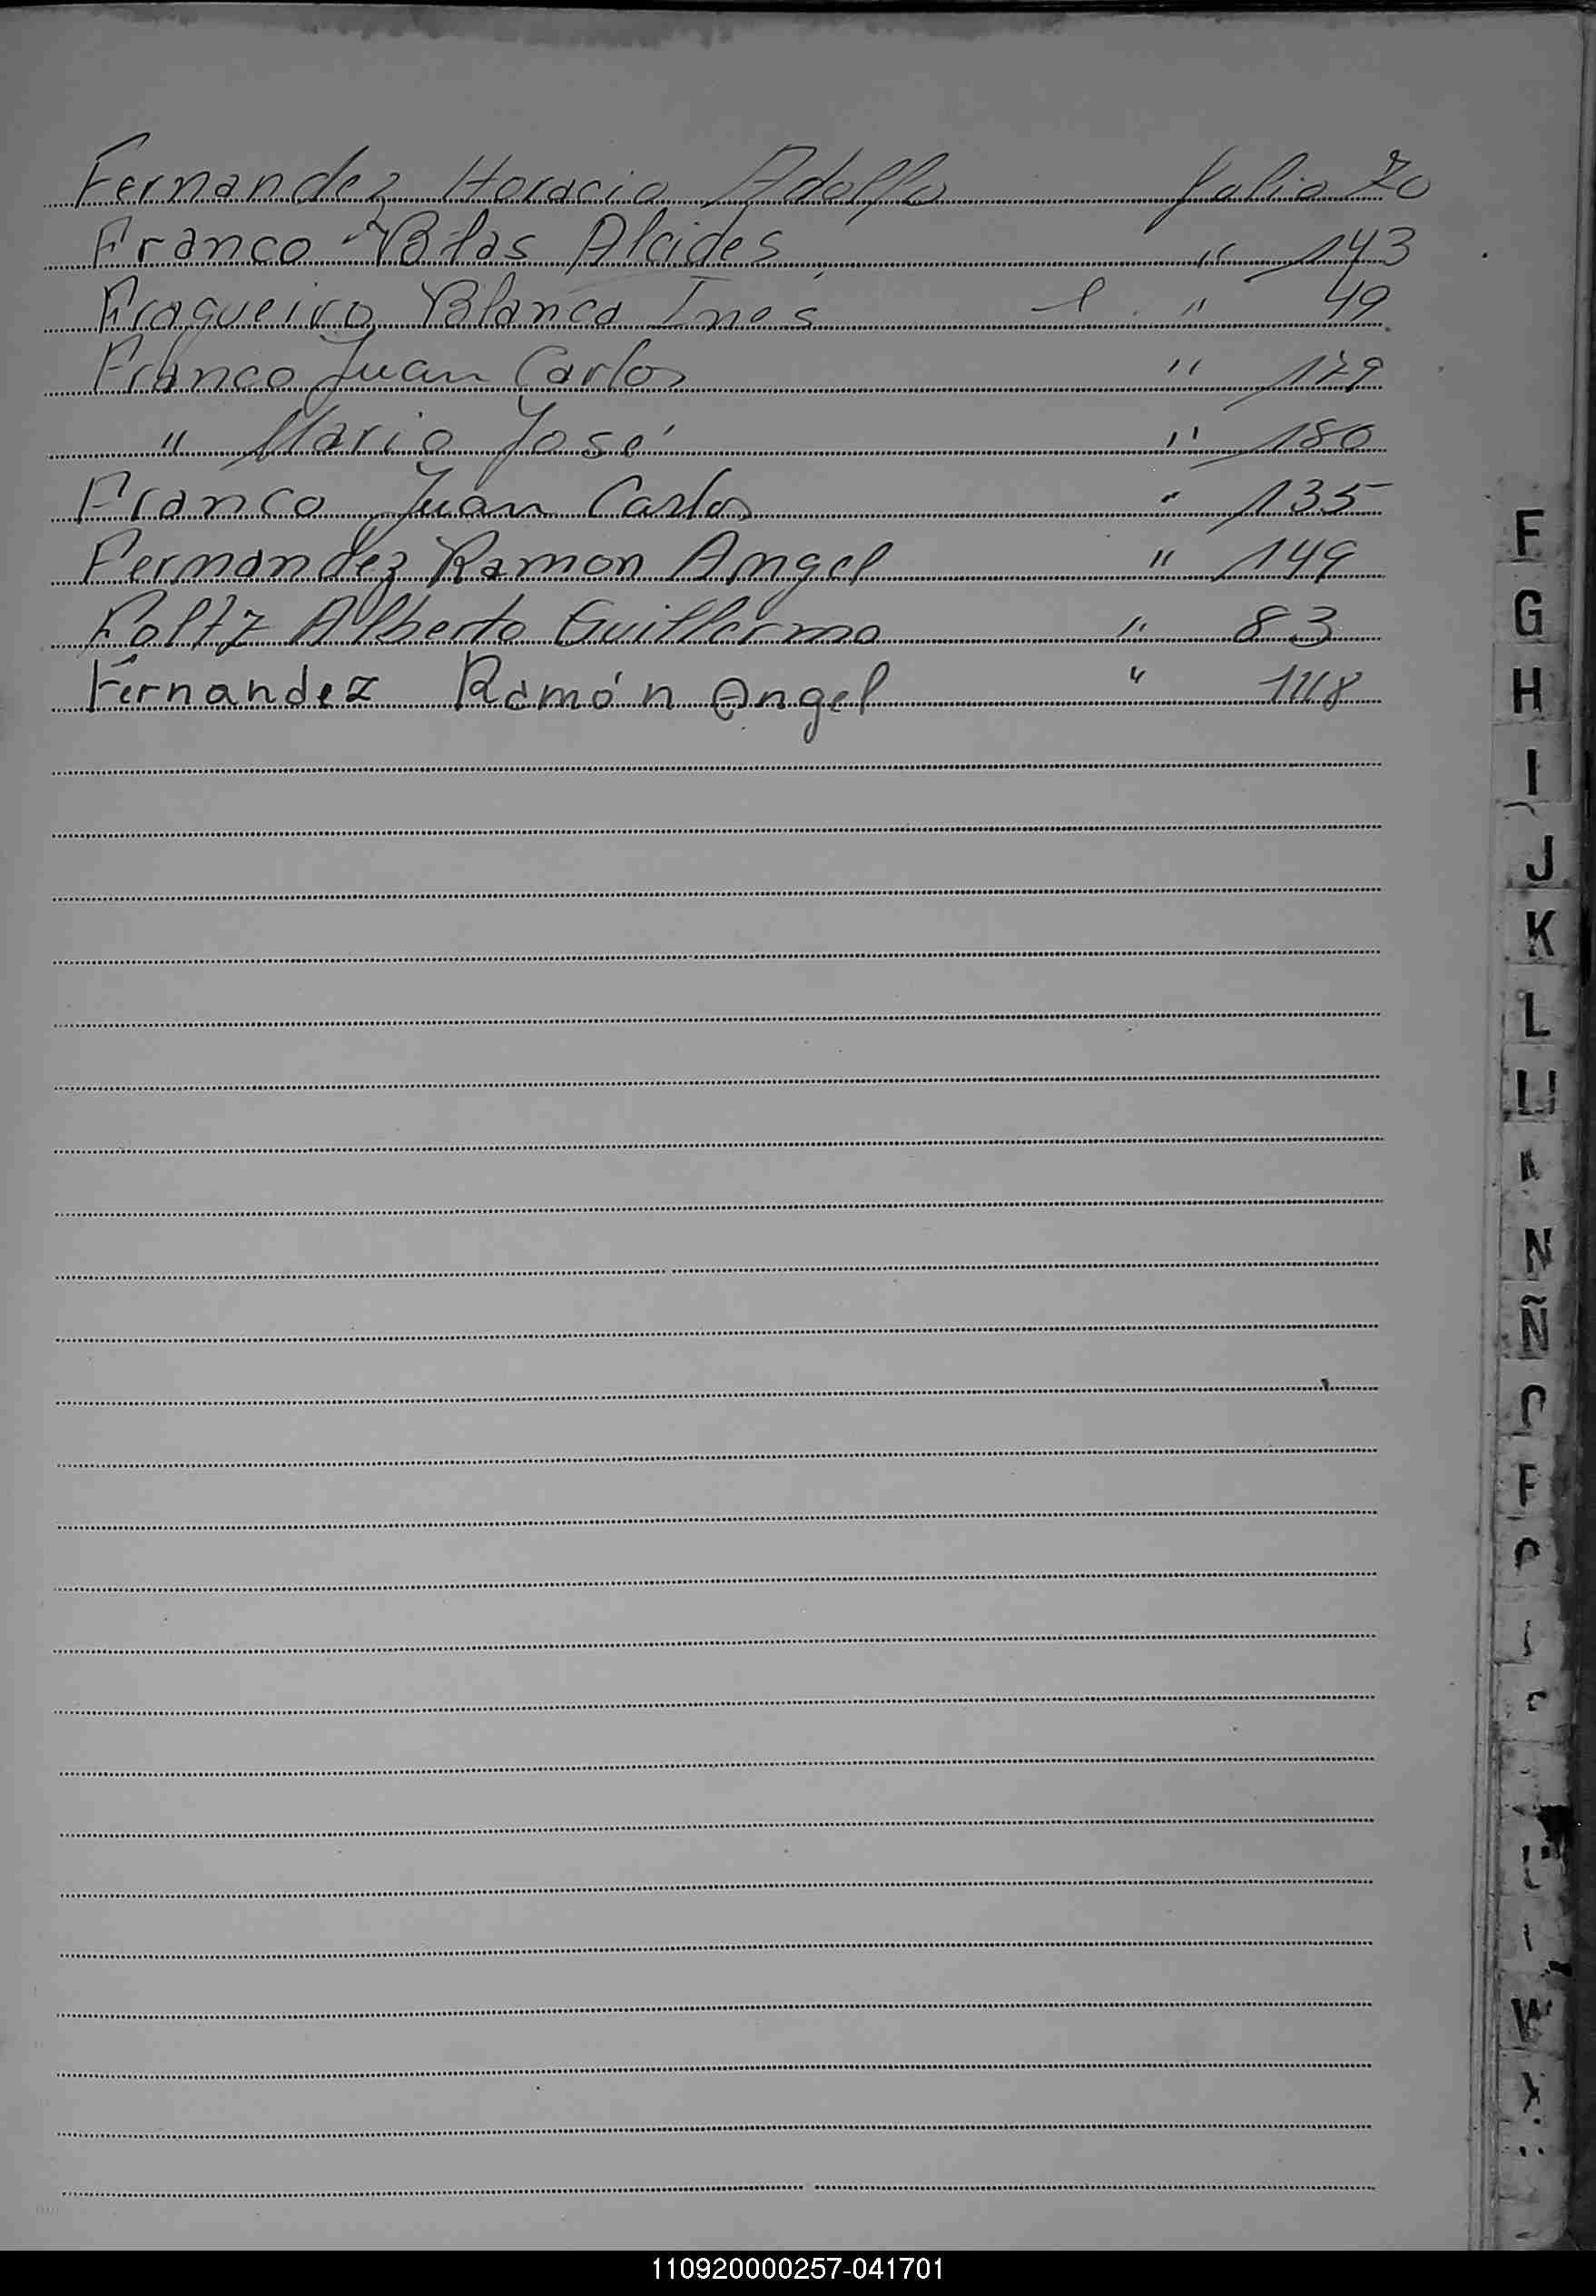 Fernandez Horacio Adolfo folio 70
Franco Blas Alcides " 143
Fragueiro Blanca Ines " 49
Franco Juan Carlos " 179
" Mario José " 180
Franco Juan Carlos " 135
Fernandez Ramon Angel " 149
Foltz Alberto Guillermo " 83
Fernandez Ramón Angel " 148
F
G
H
I
J
K
L
LL
N
Ñ
W
110920000257-041701